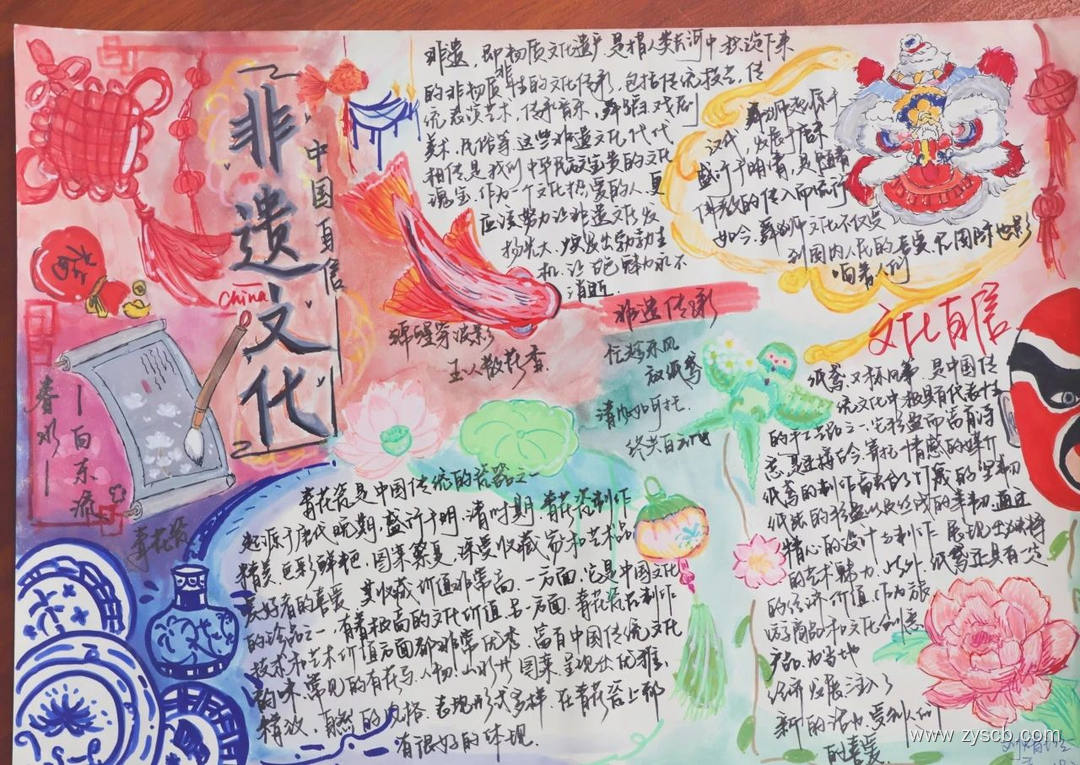 非遗文化
中国自信
China
福
春水
一向东流
青花瓷
非遗，即非物质文化遗产，是指人类长河中积淀下来
的非物质性的文化传承，包括传统技艺，传
统表演艺术，传承音乐，舞蹈戏剧
美术，民俗等，这些非遗文化代代
相传是我们中华民族宝贵的文化
瑰宝，作为一个文化热爱的人，更
应该努力让非遗文化发
扬光大，焕发出勃勃生
机，让古色魅力永不
消逝
舞狮起源于
汉代，发展于唐宋
盛行于明清，是随着
佛教的传入而流行
如今，舞狮文化不仅受
到国内人民的喜爱，在国际也影
响着人们
非遗传承
玉人散花香
任载东风
放纸鸢
文化自信
纸鸢又称风筝，是中国传
统文化中极具有代表性
的手工艺品之一，它轻盈而富有诗
意，是连接古今，寄托情感的媒介
精心的设计与制作，展现出独特
的艺术魅力，此外，纸鸢还具有一定
的经济价值，作为旅
游商品和文化创意
产品，为当地
经济发展注入了
新的活力，受到人们
的喜爱
青花瓷是中国传统的瓷器之一
起源于唐代晚期，盛行于明，清时期，青花瓷制作
精美，色彩鲜艳，图案繁复，深受收藏家和艺术品
爱好者的喜爱，其收藏价值非常高，一方面，它是中国文化
的珍品之一，有着极高的文化价值，另一方面，青花瓷在制作
技术和艺术价值方面都非常优秀，富有中国传统文化
韵味，常见的有花鸟，人物，山水等图案，呈现出优雅，
精致，自然的风格，表现形式多样，在青花瓷上都
有很好的体现。
www.zyscb.com